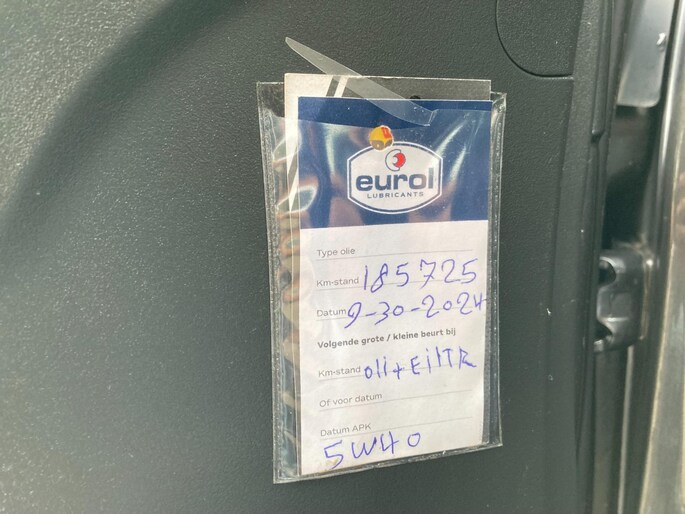 eurol
LUBRICANTS
Type olie
Km-stand 185725
Datum 9-30-2024
Volgende grote / kleine beurt bij
Km-stand oli+EilTR
Of voor datum
Datum APK
5W40